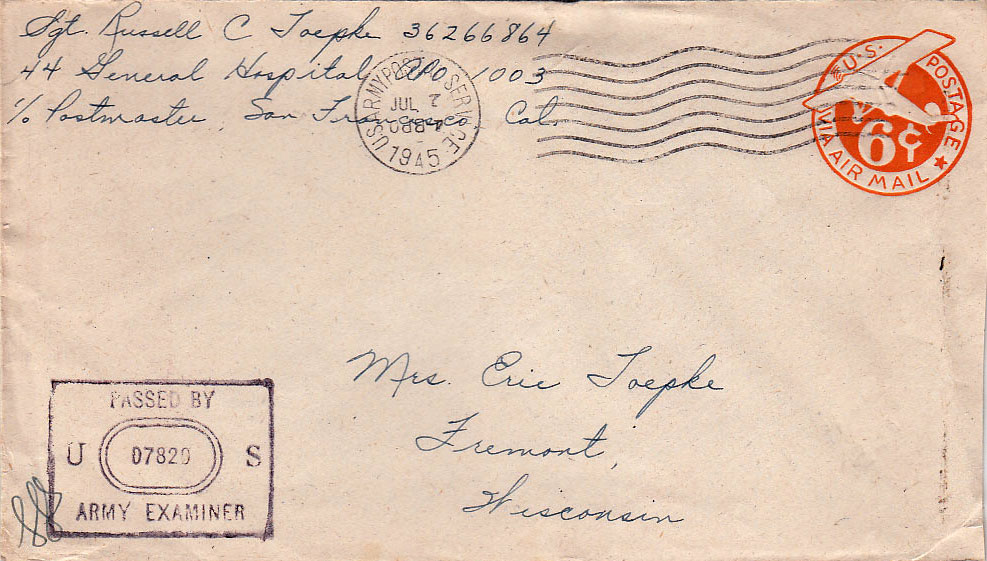 Sgt. Russell C Toepke 36266864
44 General Hospital APO 1003
℅ Postmaster, San Francisco Cal.
U.S. ARMY POSTAL SERVICE
JUL 7
1945
U.S. POSTAGE
VIA AIR MAIL
6¢
Mrs. Eric Toepke
Fremont,
Wisconsin
PASSED BY
U 07820 S
ARMY EXAMINER